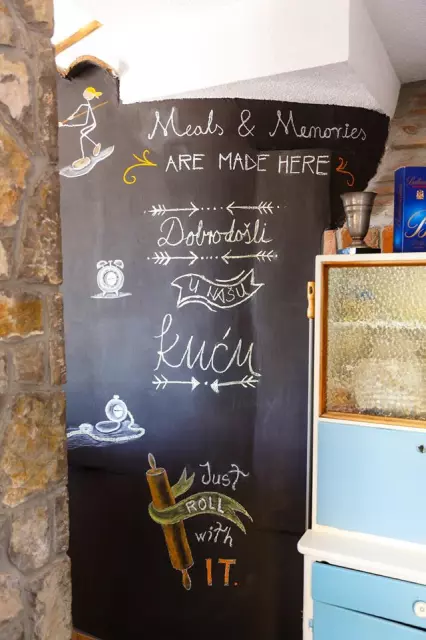 Meals & Memories
ARE MADE HERE
Dobrodošli
U NAŠU
Kuću
Just
ROLL
with
IT.